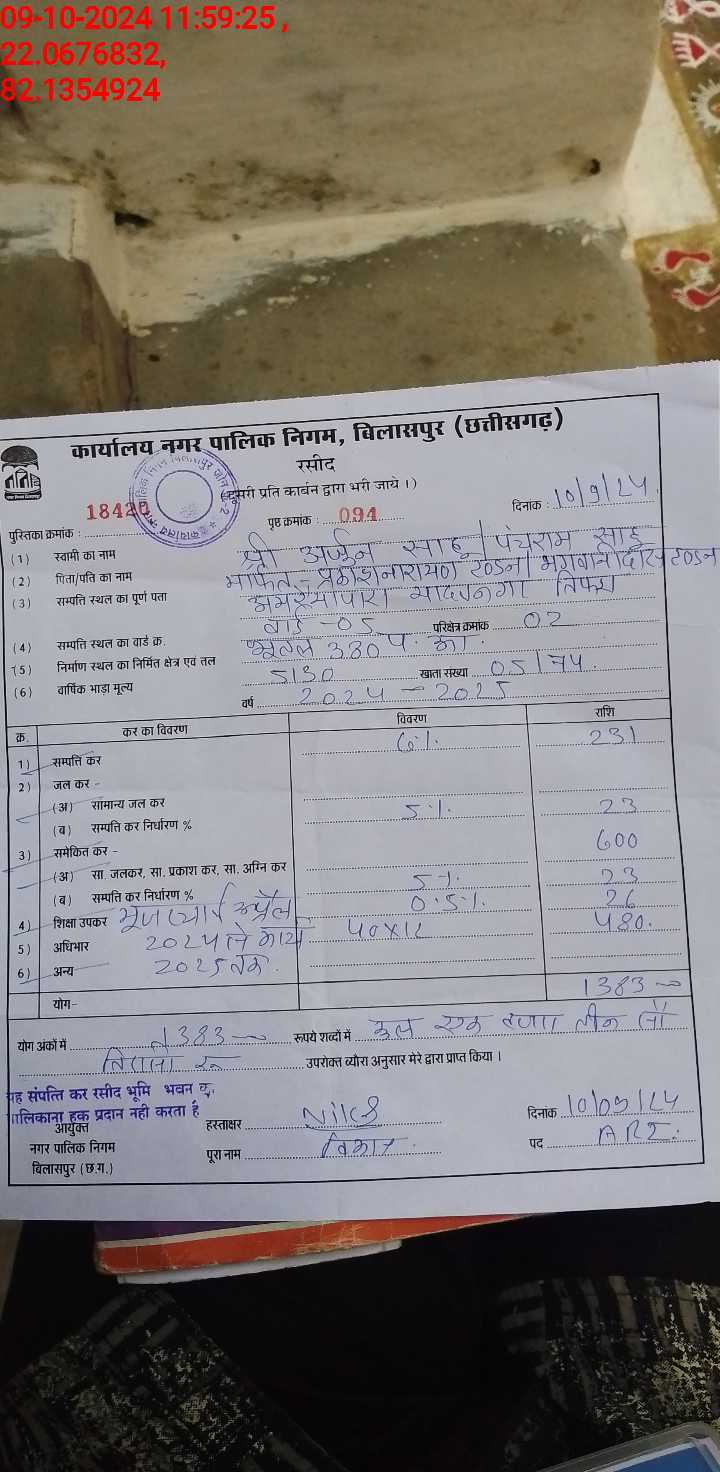 09-10-2024 11:59:25 ,
22.0676832,
82.1354924
कार्यालय नगर पालिक निगम, बिलासपुर (छत्तीसगढ़)
रसीद
(दूसरी प्रति कार्बन द्वारा भरी जाये ।)
पुस्तिका क्रमांक : 18420 पृष्ठ क्रमांक : 094 दिनांक : 10/9/24
(1) स्वामी का नाम श्री अर्जुन साहू / पंचराम साहू
(2) पिता/पति का नाम
(3) सम्पत्ति स्थल का पूर्ण पता तिफरा
(4) सम्पत्ति स्थल का वार्ड क्र. वार्ड - 05 परिक्षेत्र क्रमांक 02
(5) निर्माण स्थल का निर्मित क्षेत्र एवं तल भूतल 380
(6) वार्षिक भाड़ा मूल्य 5130 खाता संख्या 05/74
वर्ष 2024 - 2025
क्र. कर का विवरण विवरण राशि
1) सम्पत्ति कर 6% 231
2) जल कर -
(अ) सामान्य जल कर
(ब) सम्पत्ति कर निर्धारण % 5% 23
3) समेकित कर - 600
(अ) सा. जलकर, सा. प्रकाश कर, सा. अग्नि कर
(ब) सम्पत्ति कर निर्धारण % 5% 23
4) शिक्षा उपकर अप्रैल 0.5% 26
5) अधिभार 2024 से मार्च 40x12 480.
6) अन्य 2025 तक.
योग- 1383
योग अंकों में 1383 रूपये शब्दों में कुल एक हजार तीन सौ
तिरासी रू उपरोक्त ब्यौरा अनुसार मेरे द्वारा प्राप्त किया ।
यह संपत्ति कर रसीद भूमि भवन का
मालिकाना हक प्रदान नही करता है
आयुक्त हस्ताक्षर दिनांक 10/09/24
नगर पालिक निगम पूरा नाम विकास पद A R I.
बिलासपुर (छ.ग.)